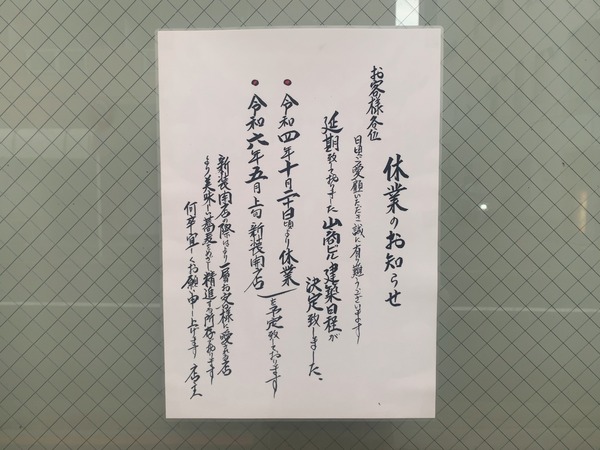 休業のお知らせ
お客様各位
日頃ご愛顧いただき誠に有り難うございます
延期致しておりました山商ビル建築日程が
決定致しました、
令和四年十月二十日頃より休業
令和六年五月上旬新装開店
を予定致しております
新装開店の際はより一層お客様に愛される店
より美味しい蕎麦をめざして精進する所存であります
何卒宜しくお願い申し上げます 店主